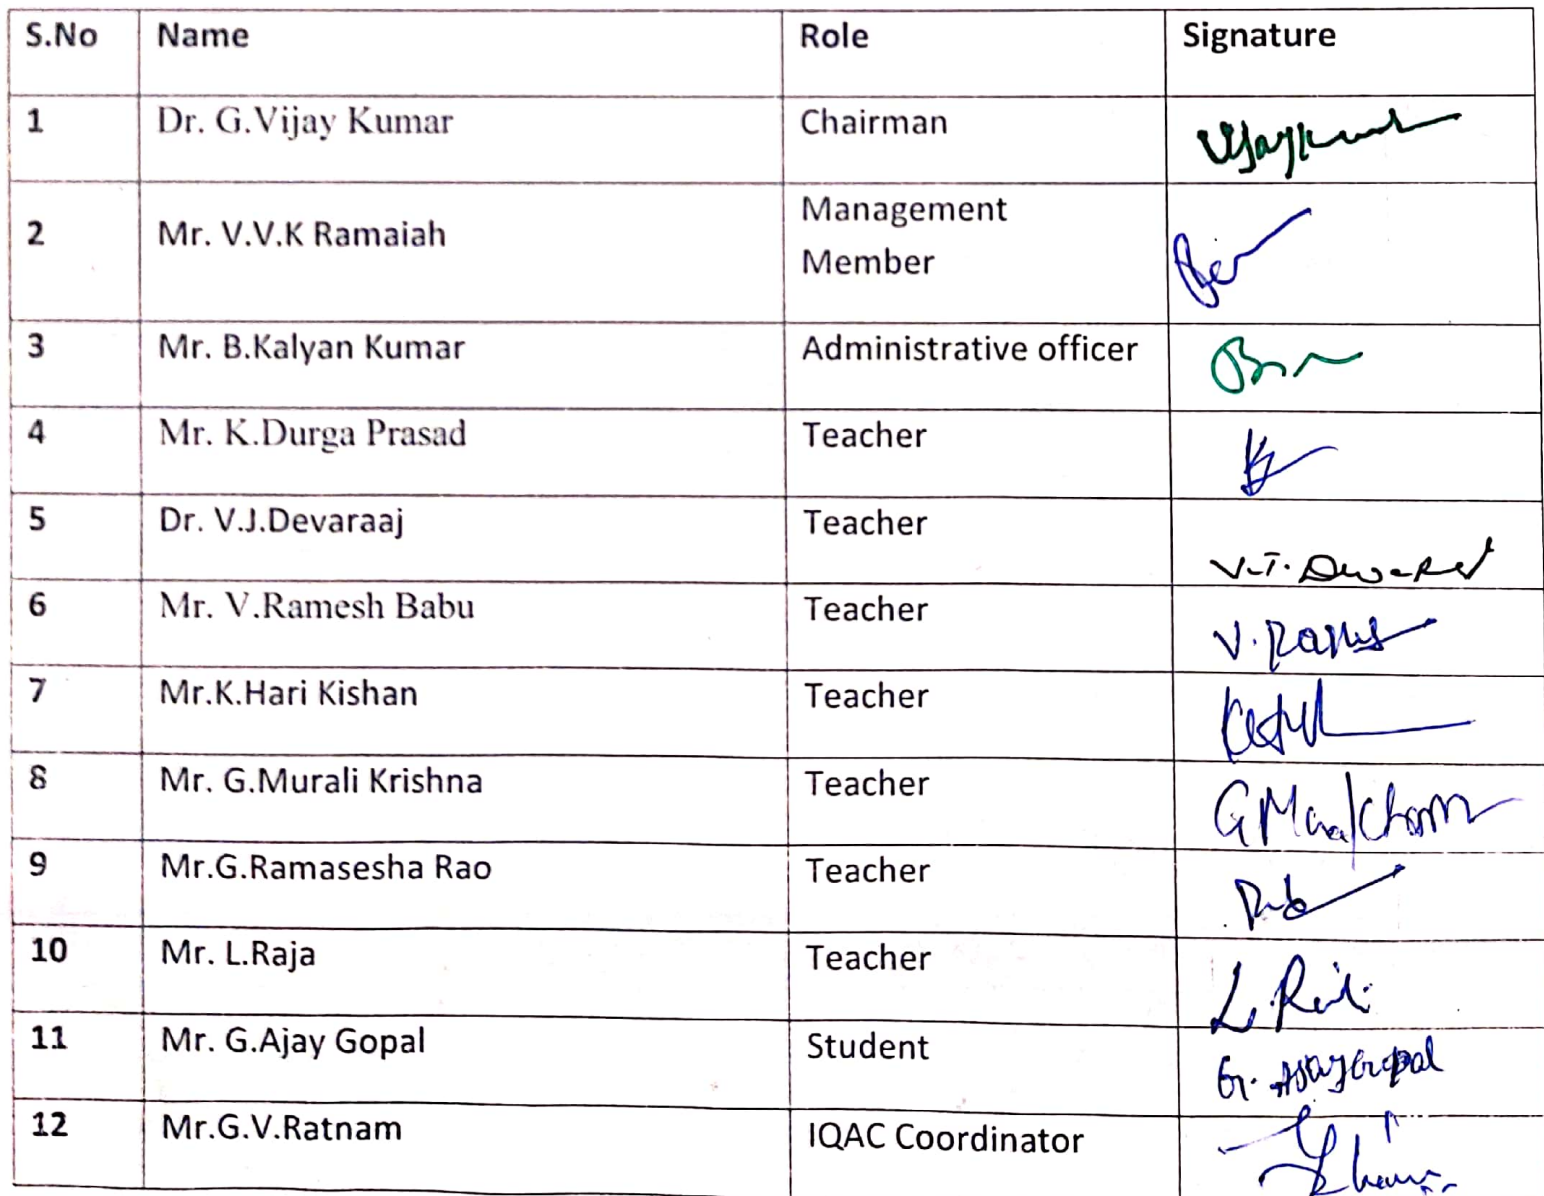 S.No Name Role Signature
1 Dr. G.Vijay Kumar Chairman Vijaykumar
Management
2 Mr. V.V.K Ramaiah
Member
3 Mr. B.Kalyan Kumar Administrative officer
4 Mr. K.Durga Prasad Teacher
5 Dr. V.J.Devaraaj Teacher
6 Mr. V.Ramesh Babu Teacher
7 Mr.K.Hari Kishan Teacher
8 Mr. G.Murali Krishna Teacher
9 Mr.G.Ramasesha Rao Teacher
10 Mr. L.Raja Teacher
11 Mr. G.Ajay Gopal Student G. AjayGopal
12 Mr.G.V.Ratnam IQAC Coordinator